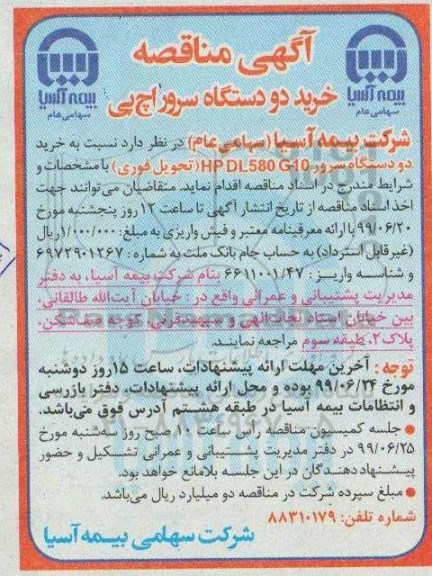 آگهی مناقصه
خرید دو دستگاه سرور اچ‌پی
بیمه آسیا
سهامی عام
بیمه آسیا
سهامی عام
شرکت بیمه آسیا (سهامی عام) در نظر دارد نسبت به خرید
دو دستگاه سرور HP DL580 G10 (تحویل فوری) با مشخصات و
شرایط مندرج در اسناد مناقصه اقدام نماید. متقاضیان می‌توانند جهت
اخذ اسناد مناقصه از تاریخ انتشار آگهی تا ساعت ۱۲ روز پنجشنبه مورخ
۹۹/۰۶/۲۰ با ارائه معرفینامه معتبر و فیش واریزی به مبلغ: ۱/۰۰۰/۰۰۰ ریال
(غیرقابل استرداد) به حساب جام بانک ملت به شماره: ۶۹۷۲۹۰۱۲۶۷
و شناسه واریز: ۶۶۱۱۰۰۱/۴۷ بنام شرکت بیمه آسیا، به دفتر
مدیریت پشتیبانی و عمرانی واقع در: خیابان آیت‌الله طالقانی،
بین خیابان استاد نجات‌الهی و سپهبدقرنی، کوچه صف‌شکن،
پلاک ۲، طبقه سوم مراجعه نمایند.
توجه: آخرین مهلت ارائه پیشنهادات، ساعت ۱۵ روز دوشنبه
مورخ ۹۹/۰۶/۲۴ بوده و محل ارائه پیشنهادات، دفتر بازرسی
و انتظامات بیمه آسیا در طبقه هشتم آدرس فوق می‌باشد.
● جلسه کمیسیون مناقصه راس ساعت ۱۰ صبح روز سه‌شنبه مورخ
۹۹/۰۶/۲۵ در دفتر مدیریت پشتیبانی و عمرانی تشکیل و حضور
پیشنهاددهندگان در این جلسه بلامانع خواهد بود.
● مبلغ سپرده شرکت در مناقصه دو میلیارد ریال می‌باشد.
شماره تلفن: ۸۸۳۱۰۱۷۹
شرکت سهامی بیمه آسیا